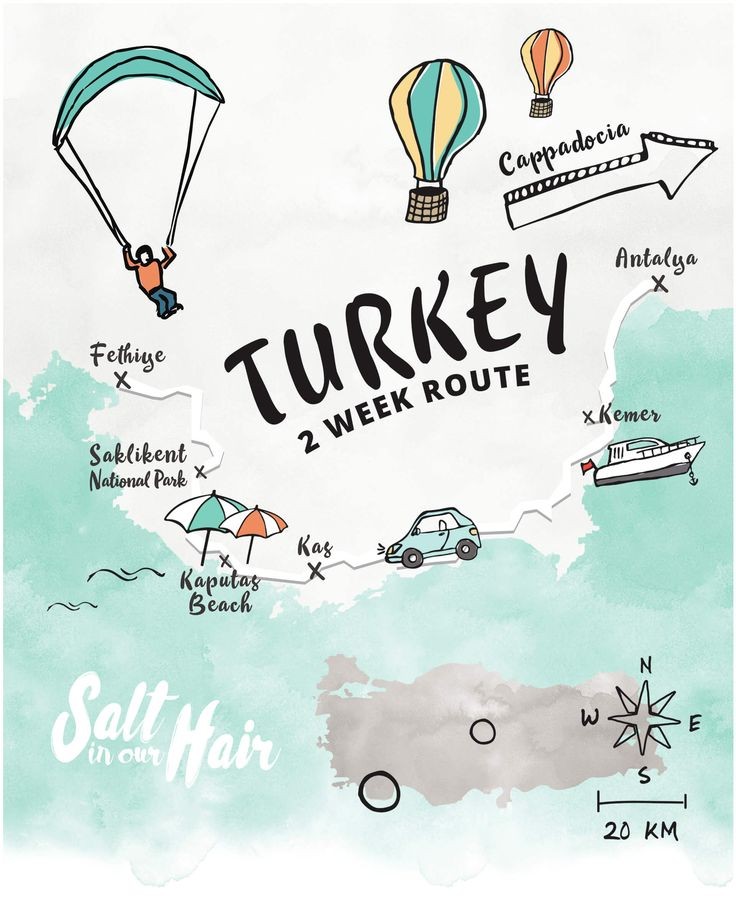 Cappadocia
Antalya
TURKEY
2 WEEK ROUTE
Fethiye
Kemer
Saklikent
National Park
Kaş
Kaputaş
Beach
Salt
in our
Hair
N
W E
S
20 KM